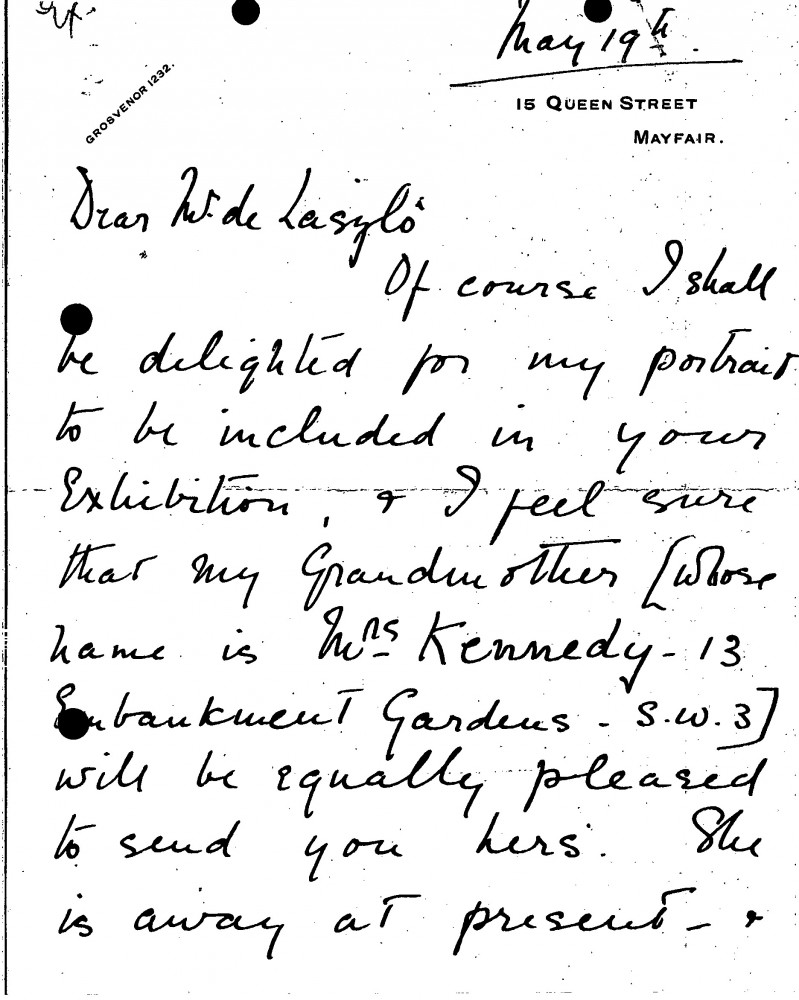 May 19th.
GROSVENOR 1232.
15 QUEEN STREET
MAYFAIR.
Dear Mr. de László
Of course I shall
be delighted for my portrait
to be included in your
Exhibition, & I feel sure
that my Grandmother [whose
name is Mrs Kennedy - 13
Embankment Gardens - S.W.3]
will be equally pleased
to send you hers. She
is away at present - &